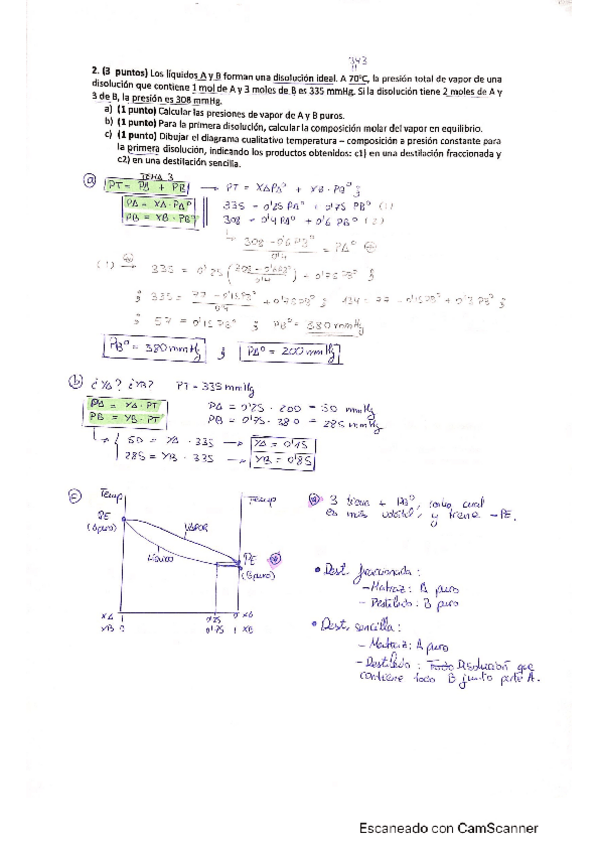 343
2. (3 puntos) Los líquidos A y B forman una disolución ideal. A 70°C, la presión total de vapor de una
disolución que contiene 1 mol de A y 3 moles de B es 335 mmHg. Si la disolución tiene 2 moles de A y
3 de B, la presión es 308 mmHg.
a) (1 punto) Calcular las presiones de vapor de A y B puros.
b) (1 punto) Para la primera disolución, calcular la composición molar del vapor en equilibrio.
c) (1 punto) Dibujar el diagrama cualitativo temperatura – composición a presión constante para
la primera disolución, indicando los productos obtenidos: c1) en una destilación fraccionada y
c2) en una destilación sencilla.
TEMA 3
a) PT = PA + PB → PT = XA PA° + XB · PB° ;
PA = XA · PA° 335 = 0'25 PA° + 0'75 PB° (1)
PB = XB · PB° 308 = 0'4 PA° + 0'6 PB° (2)
308 - 0'6 PB° / 0'4 = PA°
(1) 335 = 0'25 (308 - 0'6 PB° / 0'4) - 0'75 PB° ;
; 335 = 77 - 0'15 PB° / 0'4 + 0'75 PB° ; 134 = 77 - 0'15 PB° + 0'3 PB° ;
; 57 = 0'15 PB° ; PB° = 380 mmHg
PB° = 380 mmHg ; PA° = 200 mmHg
b) ¿YA? ¿YB? PT = 335 mmHg
PA = YA · PT PA = 0'25 · 200 = 50 mmHg
PB = YB · PT PB = 0'75 · 380 = 285 mmHg
50 = YA · 335 → YA = 0'15
285 = YB · 335 → YB = 0'85
c) Temp Temp
PE
(A puro)
VAPOR
LÍQUIDO
PE
(B puro)
XA 1 0'25 0 XA
YB 0 0'75 1 XB
B tiene + PB°, como cual
es más volátil, y tiene -PE.
• Dest. fraccionada:
- Matraz: A puro
- Destilado: B puro
• Dest. sencilla:
- Matraz: A puro
- Destilado: Todo Disolución que
contiene todo B junto parte A.
Escaneado con CamScanner